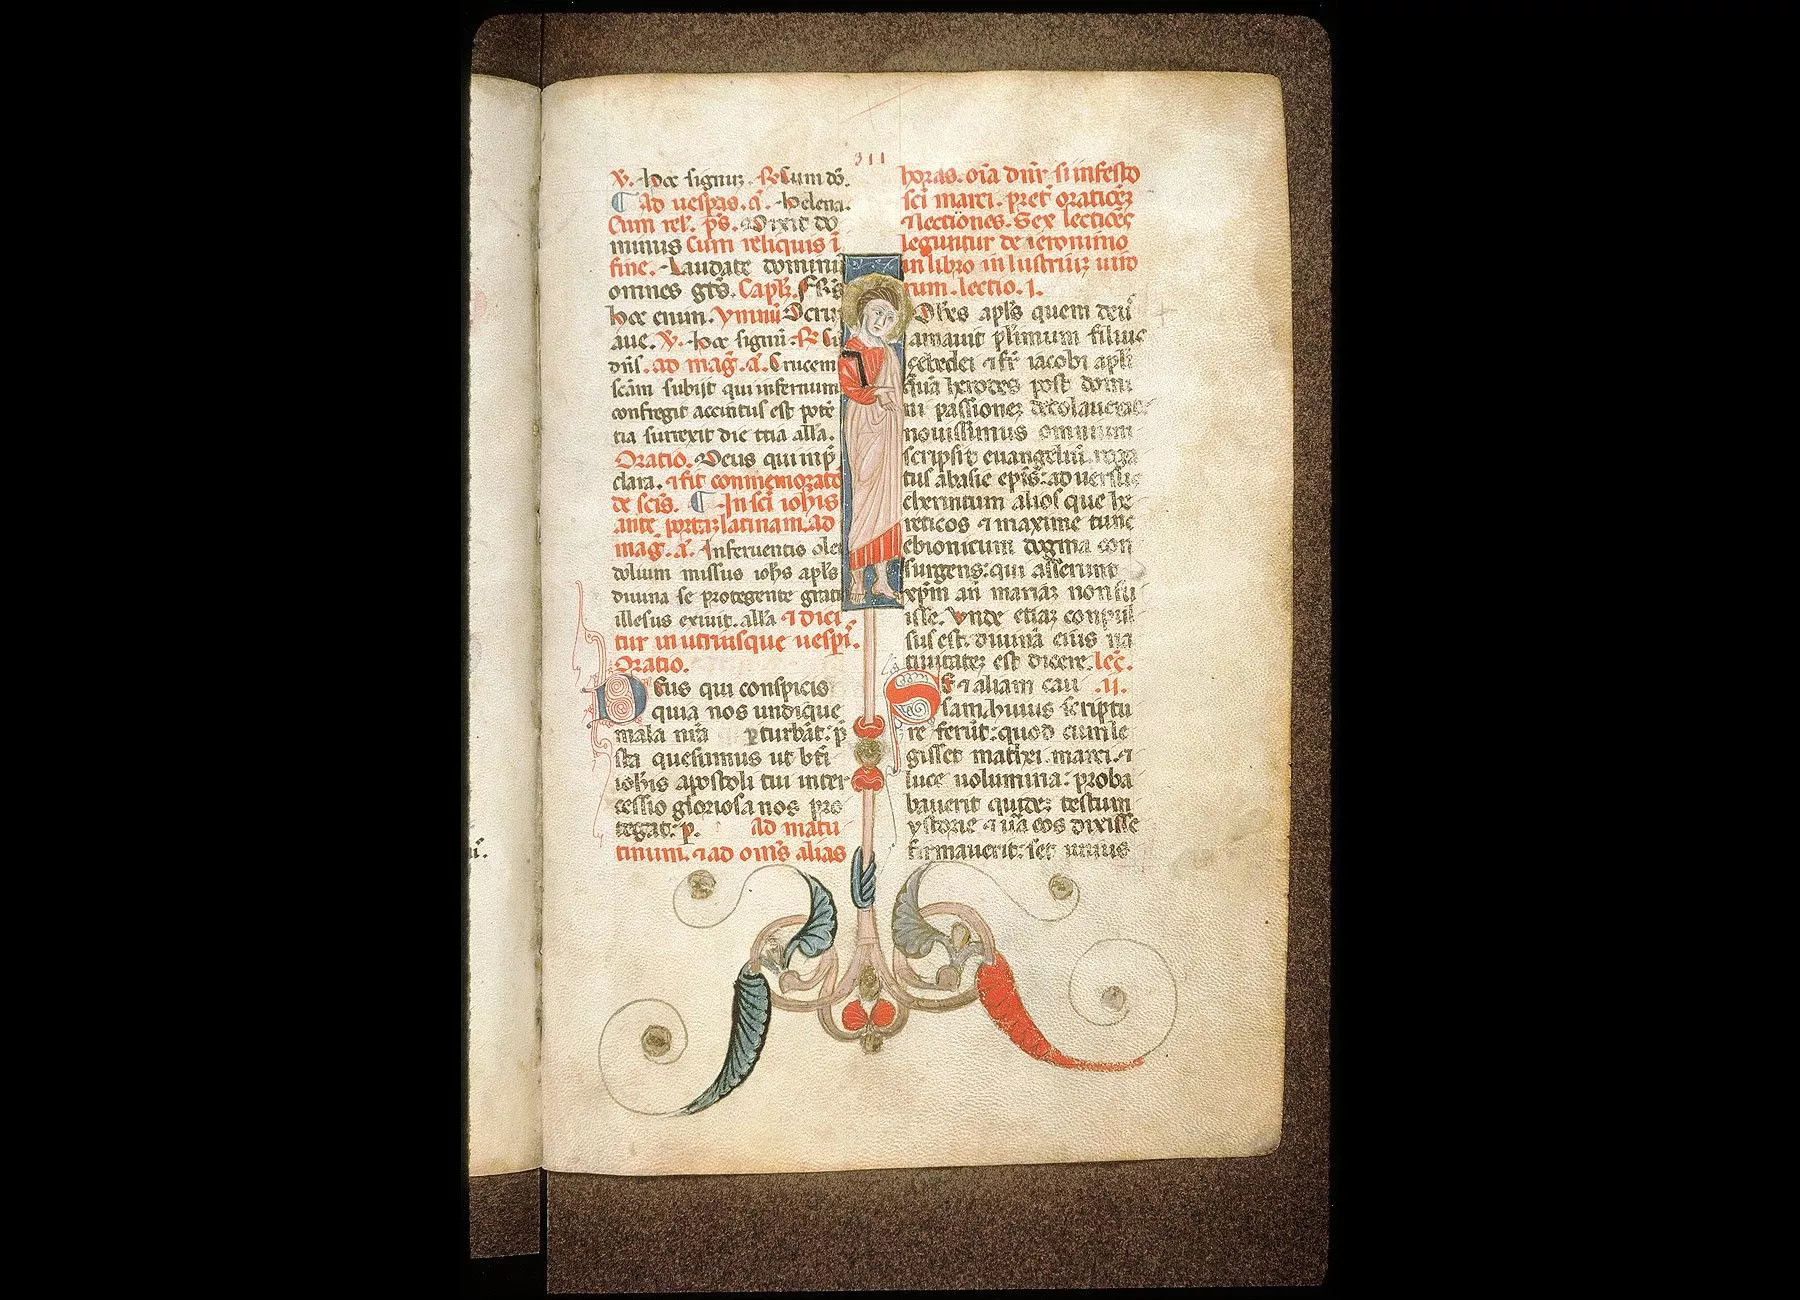 311
V. hoc signuz. R. Cum dn̄s.
Ad uesp̄as. a. helena.
Cum rel. ps̄. Dixit do
minus Cum reliquis i
fine. Laudate dominū
omnes gt̄s. Capl̄. Frs̄
hoc enim. ymnū O cru
aue. V. hoc signū. R. Cū
dn̄s. ad mag̅. a. Crucem
scām subijt qui infernum
confregit accintus est potē
tia surrexit die tt̄ia all̄a.
Oratio. Deus qui in p̄
clara. ⁊ fit commemorat̄o
de scīs. In scī ioh̄is
ante portaz latinam. ad
mag̅. a. In feruentis olei
dolium missus ioh̄s apl̄s
diuina se protegente grati
illesus exiuit. all̄a ⁊ dici
tur in utrisque uesp̄i.
Oratio.
Deus qui conspicis
quia nos undique
mala nr̄a perturbāt: p̄
sta quesumus ut bt̄i
ioh̄is apostoli tui inter
cessio gloriosa nos pro
tegat: p̄. ad matu
tinum. ⁊ ad om̄s alias
horas. oīa dn̄r si in festo
scī marci. pret̄ oratiōez
⁊ lectiones. Sex lectiōes
leguntur de ieronimo
in libro inlustriuz uiro
rum. lectio. I.
Iohēs apl̄s quem deus̄
amauit pl̄imum filius
çebedei ⁊ fr̄ iacobi apl̄i
quā herodes post domi
ni passionez decolauerat
nouissimus omnium
scripsit euangeliū roga
tus ab asie ep̄is: aduersus
cherintum alios que he
reticos ⁊ maxime tunc
ebionitum dogma con
surgens: qui asserunt
xp̄m an̄ mariaz non fu
isse. Vnde etiaz conpul
sus est. diuinā eius na
tiuitatez est dicere. lec̄.
Set ⁊ aliam cau .II.
sam huius scriptu
re ferūt: quod cum le
gisset mathei. marci. ⁊
luce uolumina: proba
bauerit quidez testum
ystorie ⁊ ūa eos dixisse
firmauerit: set unius